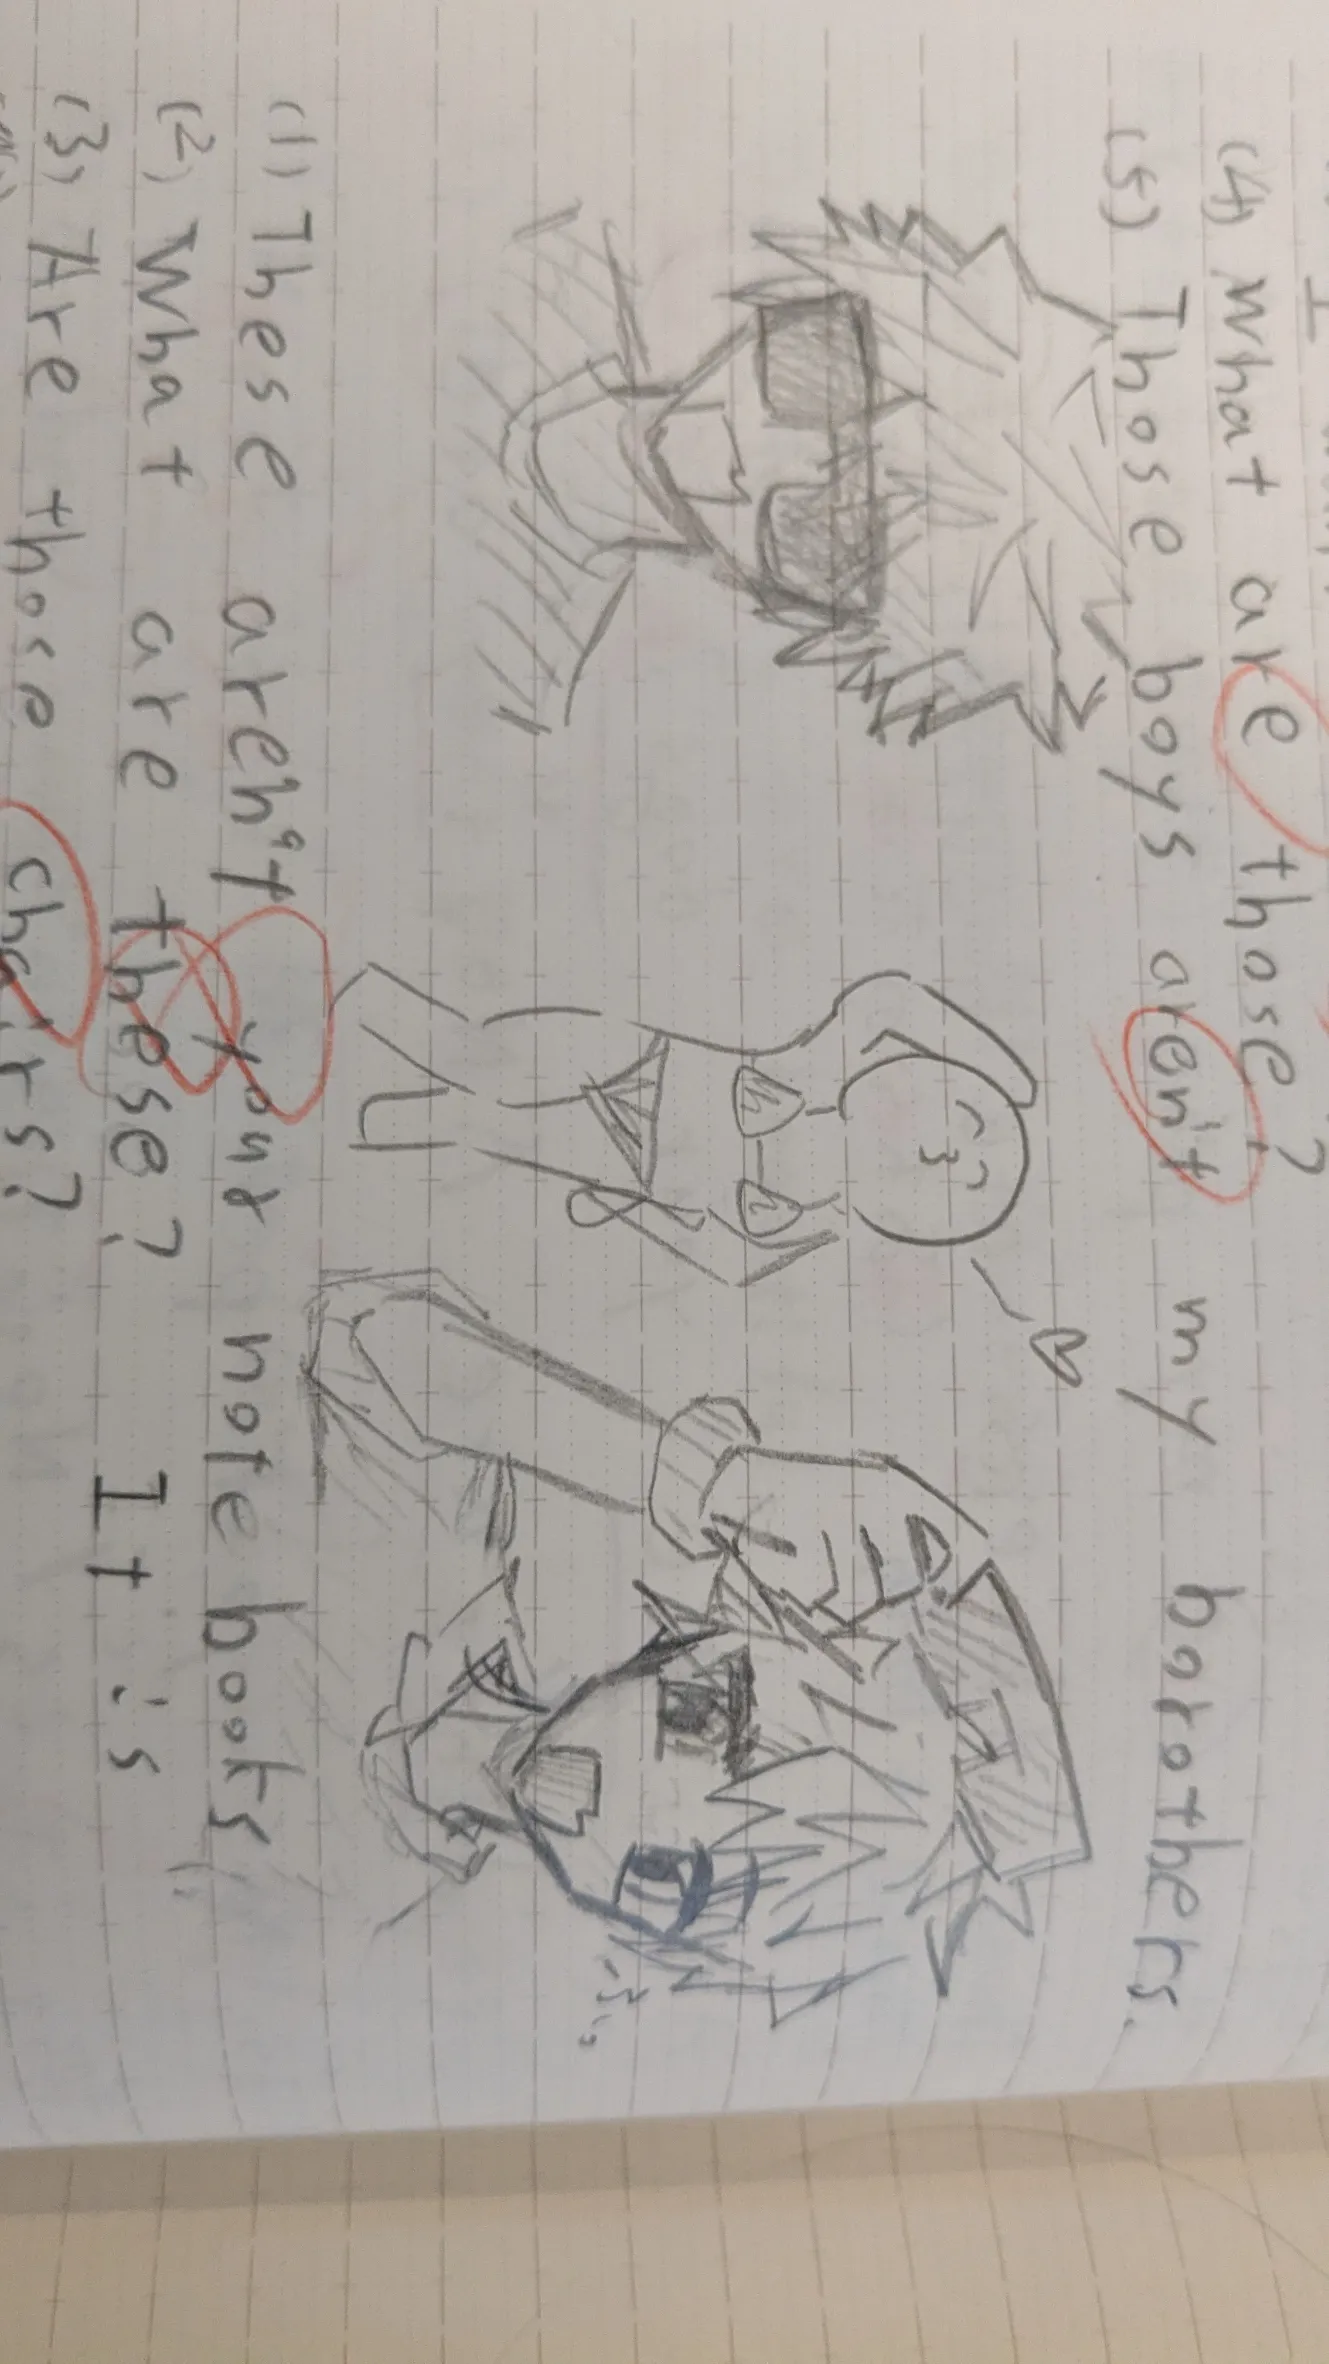 (4) What are those?
(5) Those boys aren't my borothers.
(1) These aren't your note books
(2) What are these? It is
(3) Are those chairs?